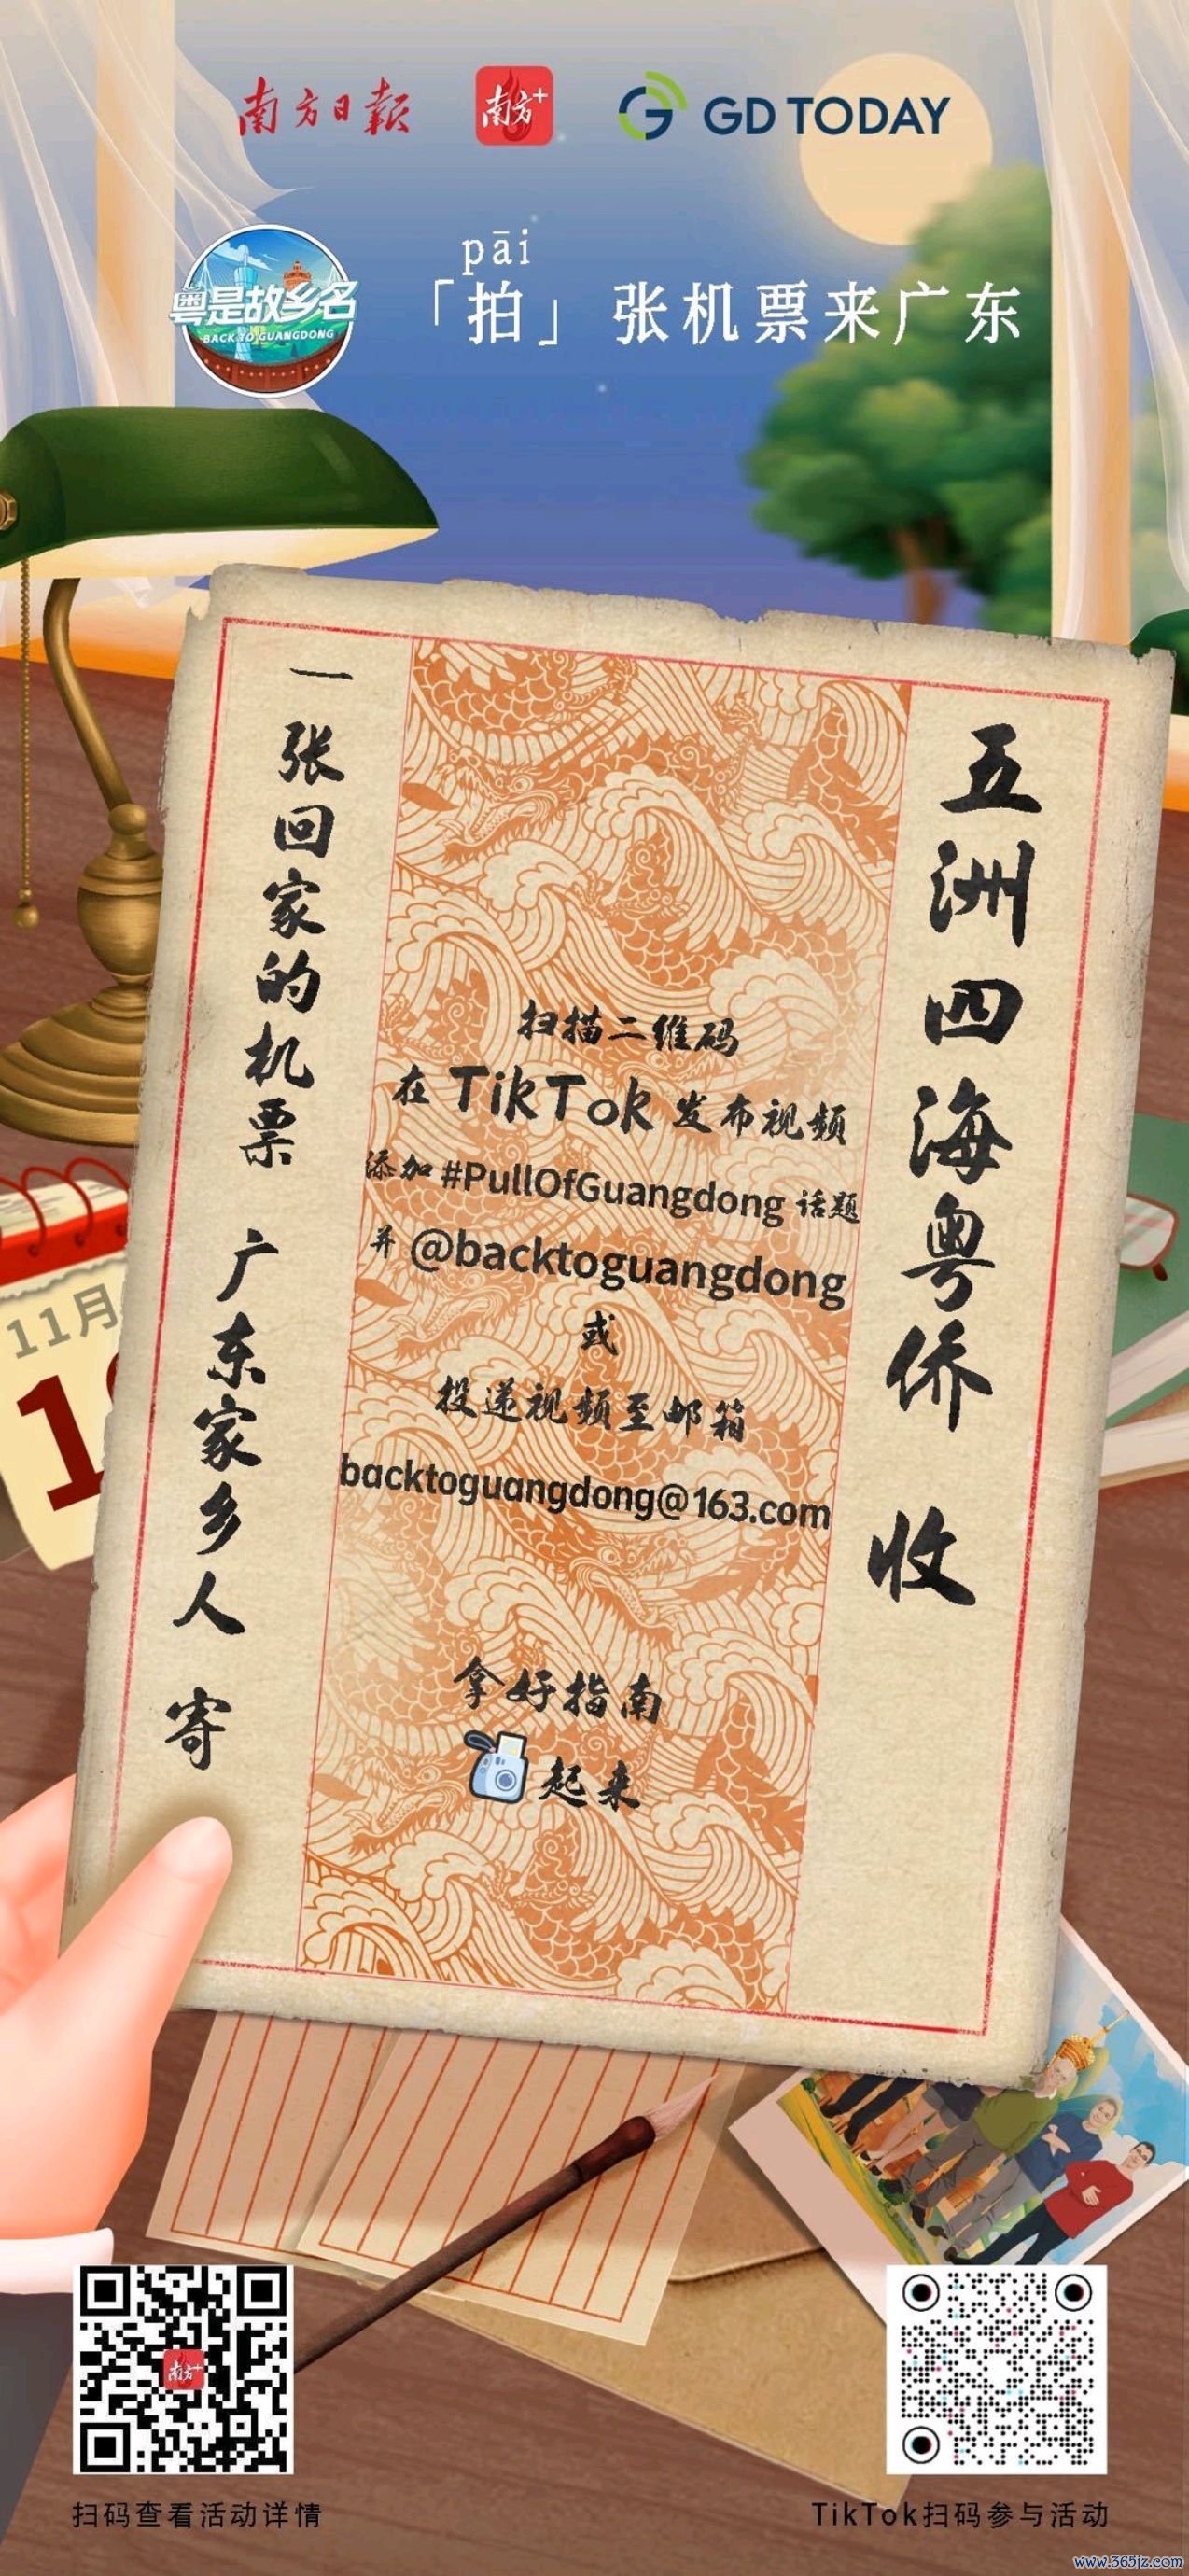 南方日報
南方+
GD TODAY
粤是故乡名
BACK TO GUANGDONG
pāi
「拍」张机票来广东
五洲四海粤侨 收
扫描二维码
在 TikTok 发布视频
添加 #PullOfGuangdong 话题
并 @backtoguangdong
或
投递视频至邮箱
backtoguangdong@163.com
拿好指南
起来
一张回家的机票 广东家乡人 寄
11月
南方+
扫码查看活动详情
TikTok扫码参与活动
www.365jz.com